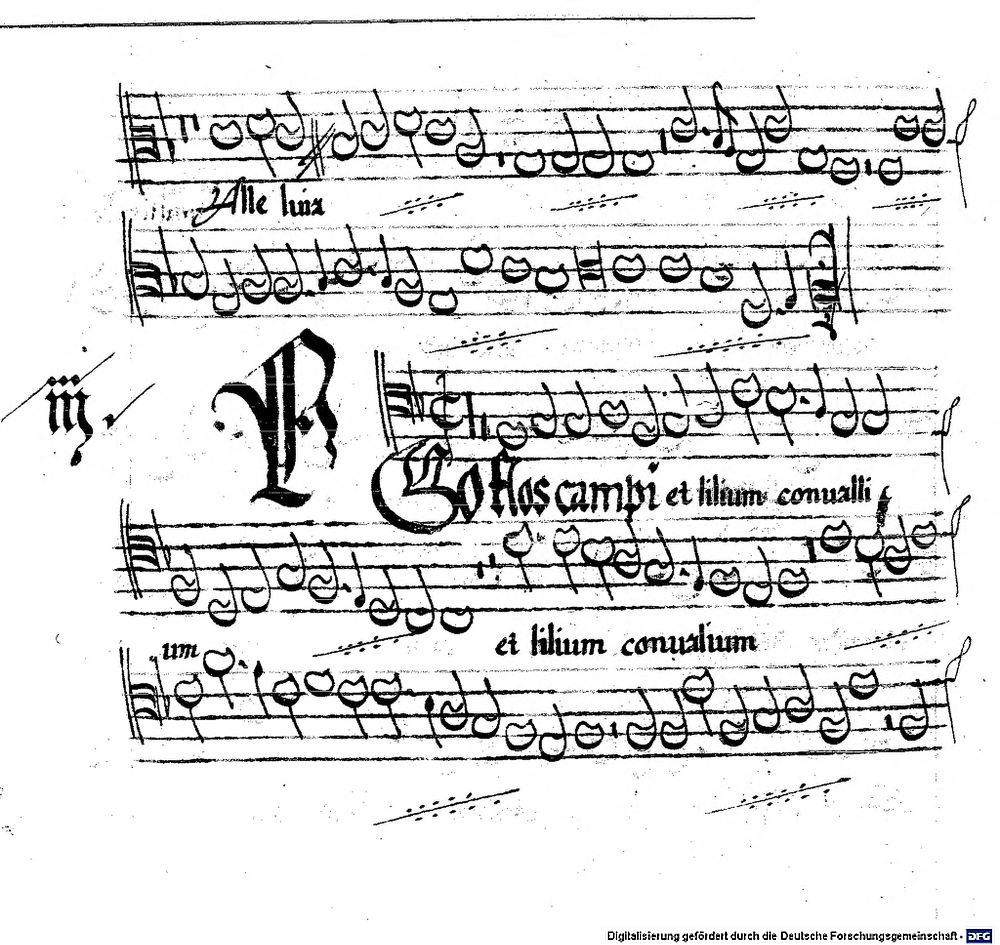 Alle luia
iij.
Ego flos campi et lilium conualli
um et lilium conualium
Digitalisierung gefördert durch die Deutsche Forschungsgemeinschaft - DFG